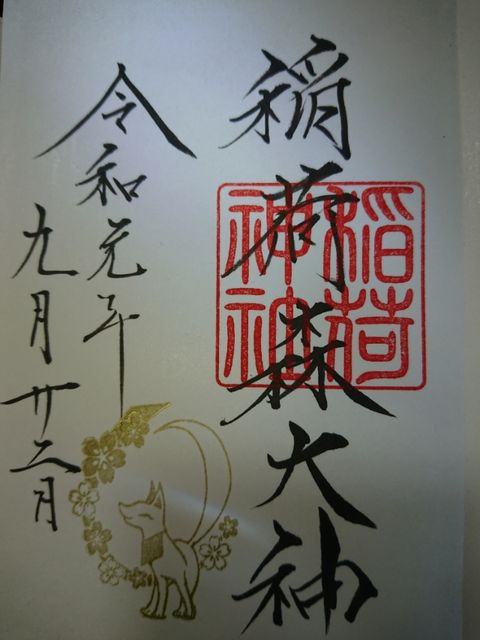 稲荷森大神
稲荷
神社
令和元年
九月廿二日